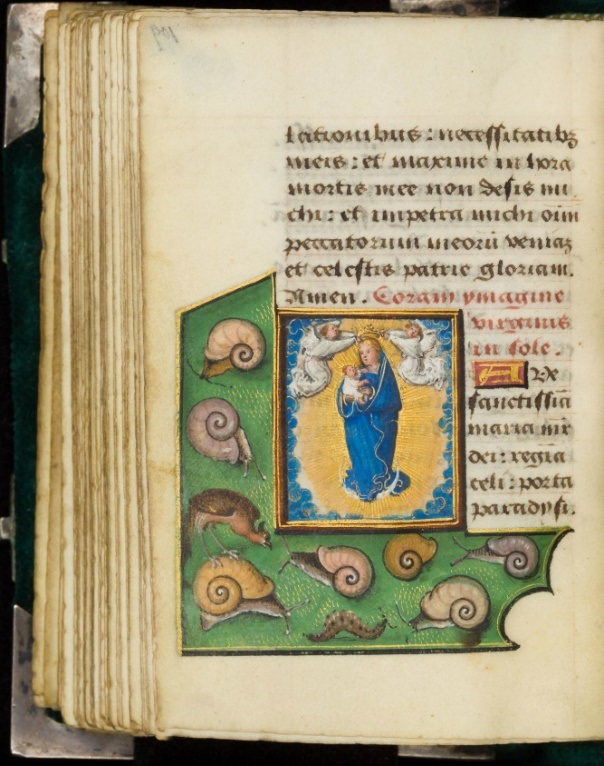 lationibus : necessitatibꝫ
meis : et maxime in hora
mortis mee non desis mi
chi : et impetra michi oīm
peccatorum meorū veniaꝫ
et celestis patrie gloriam.
Amen. Coram ymagine
virginis
in sole.
Ave
sanctissīa
maria mr̄
dei : regīa
celi : porta
paradysi.